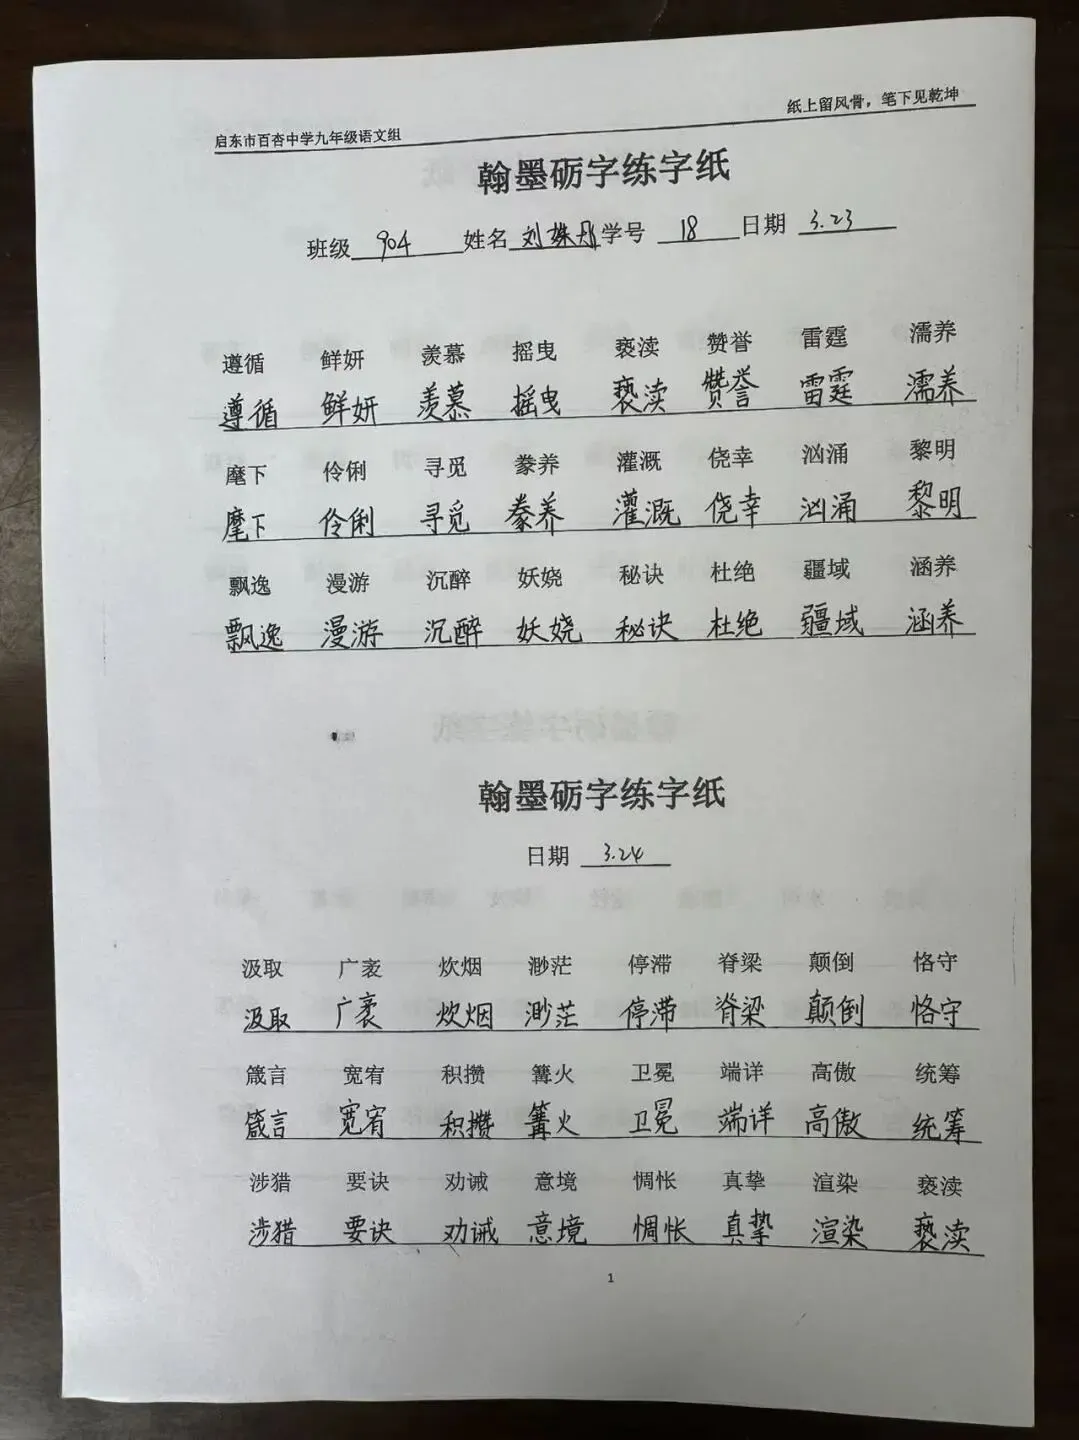 启东市百杏中学九年级语文组 纸上留风骨，笔下见乾坤
翰墨砺字练字纸
班级 904 姓名 刘姝彤 学号 18 日期 3.23
遵循 鲜妍 羡慕 摇曳 亵渎 赞誉 雷霆 濡养
遵循 鲜妍 羡慕 摇曳 亵渎 赞誉 雷霆 濡养
麾下 伶俐 寻觅 豢养 灌溉 侥幸 汹涌 黎明
麾下 伶俐 寻觅 豢养 灌溉 侥幸 汹涌 黎明
飘逸 漫游 沉醉 妖娆 秘诀 杜绝 疆域 涵养
飘逸 漫游 沉醉 妖娆 秘诀 杜绝 疆域 涵养
翰墨砺字练字纸
日期 3.24
汲取 广袤 炊烟 渺茫 停滞 脊梁 颠倒 恪守
汲取 广袤 炊烟 渺茫 停滞 脊梁 颠倒 恪守
箴言 宽宥 积攒 篝火 卫冕 端详 高傲 统筹
箴言 宽宥 积攒 篝火 卫冕 端详 高傲 统筹
涉猎 要诀 劝诫 意境 惆怅 真挚 渲染 亵渎
涉猎 要诀 劝诫 意境 惆怅 真挚 渲染 亵渎
1